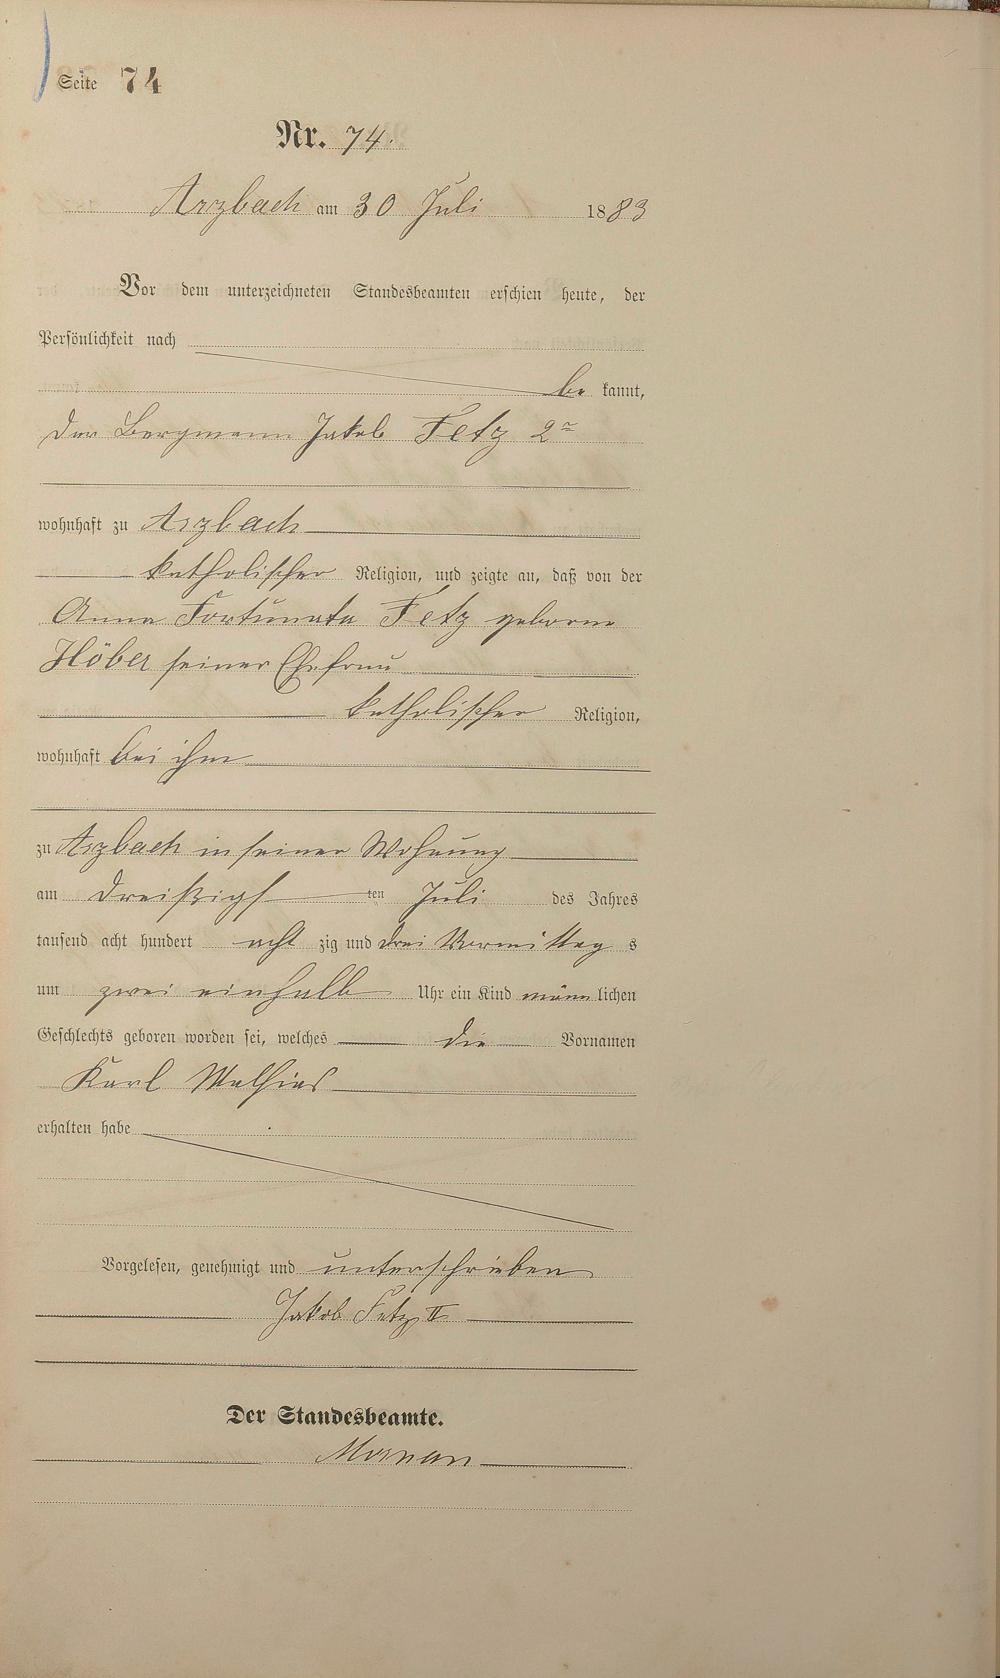 Seite 74
Nr. 74.
Arzbach am 30 Juli 1883
Vor dem unterzeichneten Standesbeamten erschien heute, der
Persönlichkeit nach
be kannt,
der Bergmann Jakob Fetz 2r
wohnhaft zu Arzbach
katholischer Religion, und zeigte an, daß von der
Anna Fortunata Fetz geborne
Höber seiner Ehefrau
katholischer Religion,
wohnhaft bei ihm
zu Arzbach in seiner Wohnung
am dreißigs ten Juli des Jahres
tausend acht hundert acht zig und drei Vormittag s
um zwei einhalb Uhr ein Kind männ lichen
Geschlechts geboren worden sei, welches die Vornamen
Karl Mathias
erhalten habe
Vorgelesen, genehmigt und unterschrieben
Jakob Fetz II
Der Standesbeamte.